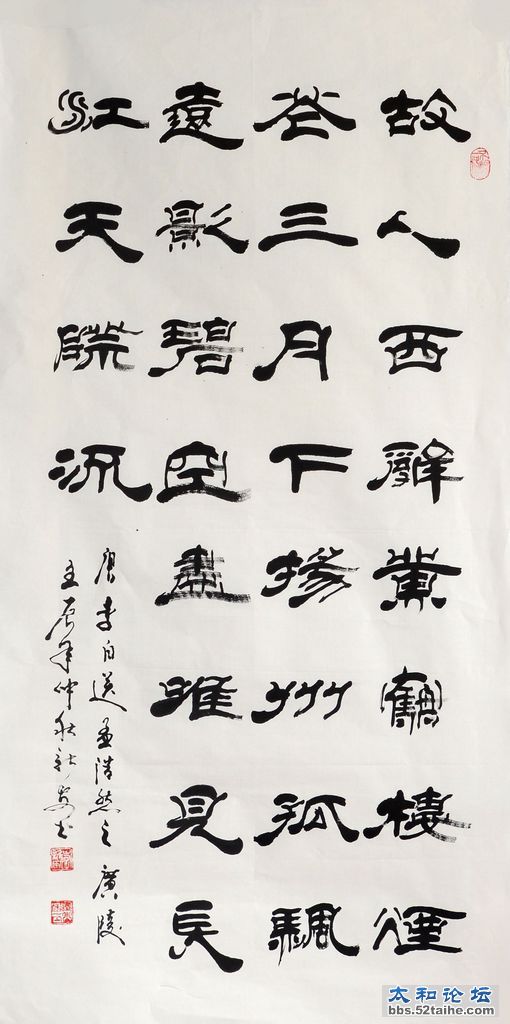 故人西辭黃鶴樓煙
花三月下揚州孤颿
遠影碧空盡唯見長
江天際流
唐李白送孟浩然之廣陵
壬辰年仲秋新安书
太和论坛
bbs.52taihe.com